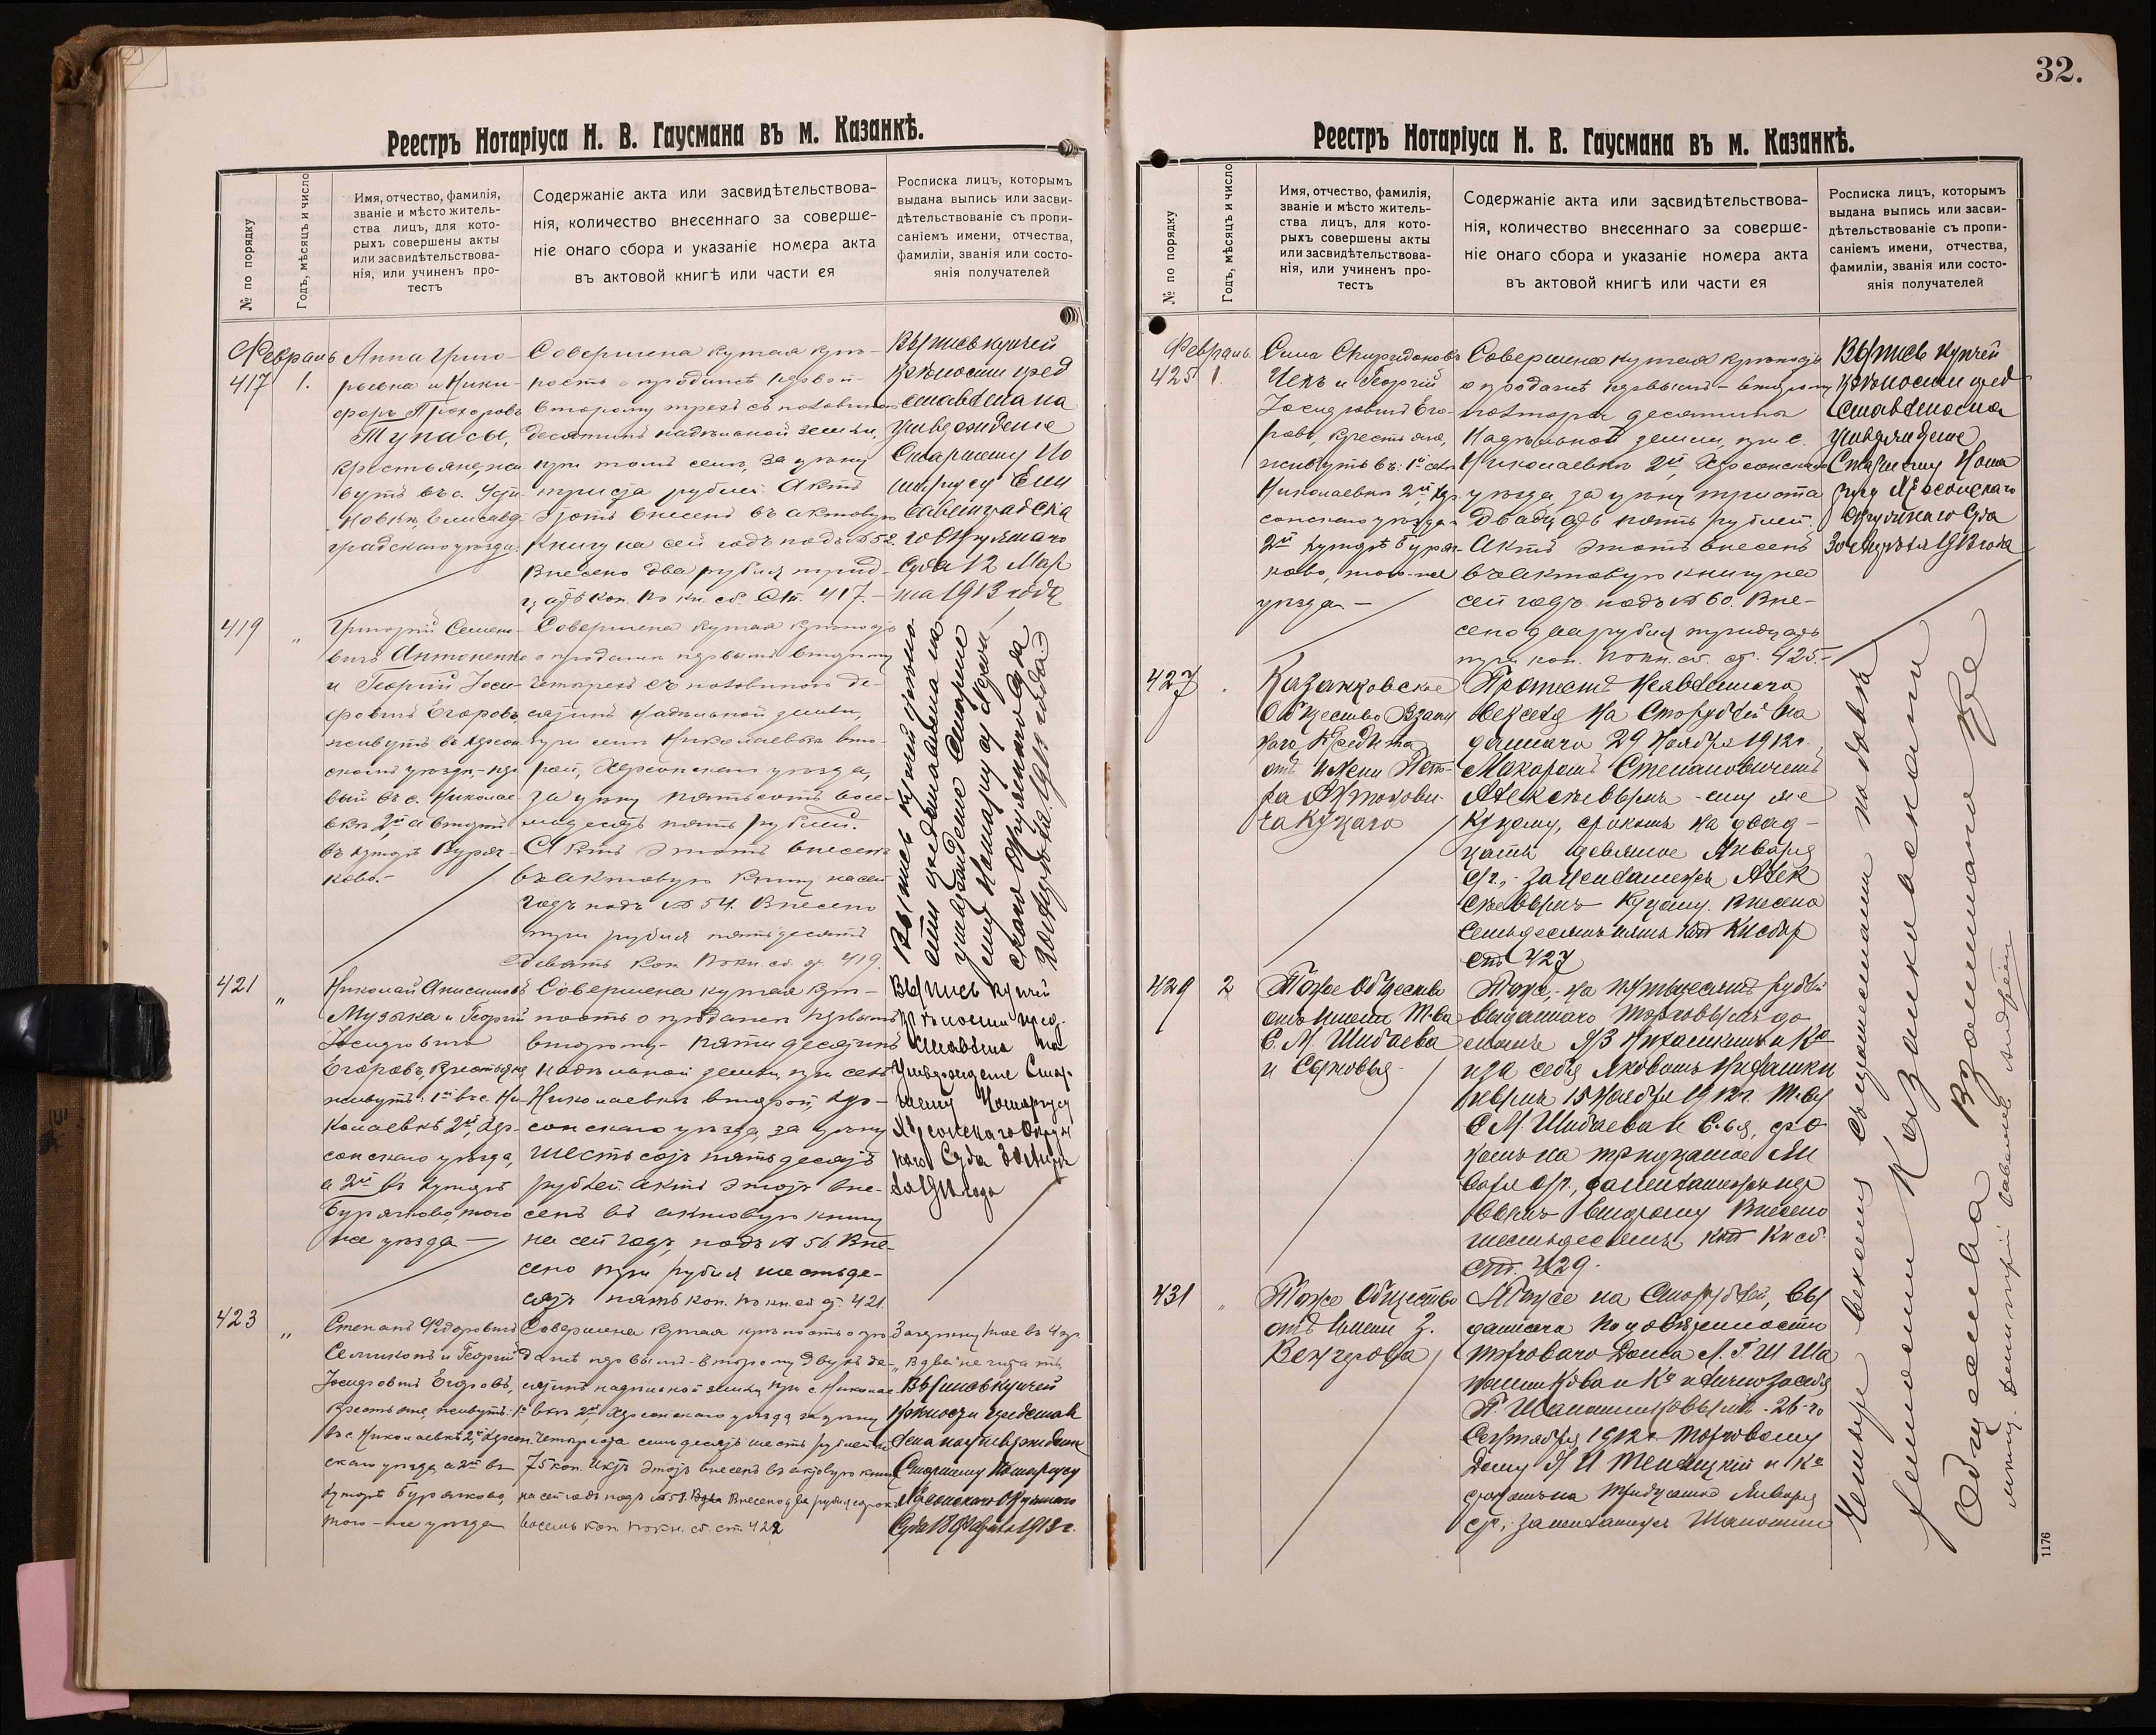 Реестръ Нотаріуса Н. В. Гаусмана въ м. Казанкѣ.
№ по порядку
Годъ, мѣсяцъ и число
Имя, отчество, фамилія,
званіе и мѣсто житель-
ства лицъ, для кото-
рыхъ совершены акты
или засвидѣтельствова-
нія, или учиненъ про-
тестъ
Содержаніе акта или засвидѣтельствова-
нія, количество внесеннаго за соверше-
ніе онаго сбора и указаніе номера акта
въ актовой книгѣ или части ея
Росписка лицъ, которымъ
выдана выпись или засви-
дѣтельствованіе съ пропи-
саніемъ имени, отчества,
фамиліи, званія или состо-
янія получателей
Февраль
417 1.
Анна Григо-
рьевна и Ники-
форъ Прохоровъ
Тупасы,
крестьяне, жи-
вутъ въ с. Усти-
новкѣ, Елисавет-
градскаго уѣзда.
Совершена купчая крѣ-
пость о продажѣ первой-
второму трехъ съ половиною
десятинъ надѣльной земли,
при томъ селѣ, за цѣну
триста рублей. Актъ
этотъ внесенъ въ актовую
книгу на сей годъ подъ № 52.
Внесено два рубля трид-
цать коп. по кн. сб. ст. 417.-
Выпись купчей
крѣпости пред
ставлена на
утвержденіе
Старшему Но
таріусу Ели
саветградска
го Окружнаго
Суда 12 Мар
та 1913 года
419 "
Григорій Семено-
вичъ Антоненко
и Георгій Іоси-
фовичъ Егоровъ,
живутъ въ Херсон-
скомъ уѣздѣ,- пер-
вый въ с. Николае-
вкѣ 2й, а второй
въ хуторѣ Буряч-
ково.-
Совершена купчая крѣпость
о продажѣ первымъ второму
четырехъ съ половиною де-
сятинъ надѣльной земли,
при селѣ Николаевкѣ вто-
рой, Херсонскаго уѣзда,
за цѣну пятьсотъ восе-
мьдесятъ пять рублей.
Актъ этотъ внесенъ
въ актовую книгу на сей
годъ подъ № 54. Внесено
три рубля пятьдесятъ
девять коп. по кн. сб. ст. 419.
Выпись купчей крѣпо
сти представлена на
утвержденіе Старше
му Нотаріусу Херсон
скаго Окружнаго Суда
421 "
Николай Анисимовъ
Музыка и Георгій
Іосифовичъ
Егоровъ, крестьяне,
живутъ: 1й въ с. Ни-
колаевкѣ 2й, Хер-
сонскаго уѣзда,
а 2й въ хуторѣ
Бурячково, того
же уѣзда —
Совершена купчая крѣ-
пость о продажѣ первымъ
второму - пяти десятинъ
надѣльной земли, при селѣ
Николаевкѣ второй, Хер-
сонскаго уѣзда, за цѣну
шестьсотъ пятьдесятъ
рублей. Актъ этотъ вне-
сенъ въ актовую книгу
на сей годъ, подъ № 56 Вне-
сено три рубля шестьде-
сятъ пять коп. по кн. сб. ст. 421.
Выпись купчей
крѣпости пред-
ставлена на
утвержденіе Стар-
шему Нотаріусу
Херсонскаго Окруж
наго Суда 30 Апрѣ
ля 1913 года
423 "
Степанъ Федоровичъ
и Георгій
Іосифовичъ Егоровъ,
крестьяне, живутъ: 1й
въ с. Николаевкѣ 2й, Херсон-
скаго уѣзда, а 2й въ
хуторѣ Бурячково,
того-же уѣзда
Совершена купчая крѣпость о про
дажѣ первымъ - второму двухъ де-
сятинъ надѣльной земли, при с. Николае
вкѣ 2й Херсонскаго уѣзда, за цѣну
четыреста семьдесятъ шесть рублей
75 коп. Актъ этотъ внесенъ въ актовую книгу
на сей годъ подъ № 58. Внесено два рубля сорокъ
восемь коп. по кн. сб. ст. 422
Зачеркнутое въ 4 гр.
не читать.
Выпись купчей
крѣпости представ
лена на утвержденіе
Старшему Нотаріусу
Херсонскаго Окружнаго
Реестръ Нотаріуса Н. В. Гаусмана въ м. Казанкѣ.
32.
№ по порядку
Годъ, мѣсяцъ и число
Имя, отчество, фамилія,
званіе и мѣсто житель-
ства лицъ, для кото-
рыхъ совершены акты
или засвидѣтельствова-
нія, или учиненъ про-
тестъ
Содержаніе акта или засвидѣтельствова-
нія, количество внесеннаго за соверше-
ніе онаго сбора и указаніе номера акта
въ актовой книгѣ или части ея
Росписка лицъ, которымъ
выдана выпись или засви-
дѣтельствованіе съ пропи-
саніемъ имени, отчества,
фамиліи, званія или состо-
янія получателей
Февраль.
425 1.
Сила Спиридоновъ
и Георгій
Іосифовичъ Его-
ровъ, крестьяне,
живутъ въ: 1й селѣ
Николаевкѣ 2й, Хер-
сонскаго уѣзда а
2й хуторѣ Буряч-
ково, того-же
уѣзда —
Совершена купчая крѣпость
о продажѣ первымъ - второму
полторы десятины
надѣльной земли, при с.
Николаевкѣ 2й, Херсонскаго
уѣзда, за цѣну триста
двадцать пять рублей.
Актъ этотъ внесенъ
въ актовую книгу на
сей годъ подъ № 60. Вне-
сено два рубля тридцать
три коп. по кн. сб. ст. 425.-
Выпись купчей
крѣпости пред
ставлена на
утвержденіе
Старшему Нота
ріусу Херсонскаго
Окружнаго Суда
30 Апрѣля 1913 года
427
Казанковское
Общество Взаим
наго Кредита
отъ имени Пет-
ра Антонови-
ча Куцаго
Протестъ неявленнаго
векселя на сто рублей вы
даннаго 29 Ноября 1912 г.
Макаромъ Степановичемъ
Алексѣевымъ ему же
Куцому, срокомъ на двад-
цать девятое Января
с/г., заплатить Алек
сѣевымъ Куцому. Внесено
семьдесятъ пять коп. Кн сбор
ст. 427
429 2
Тоже Общество
отъ имени Т-ва
С. М. Шибаева
и Сыновья
Тоже, на пятьдесятъ рублей
выданнаго Торговымъ до
15 Ноября 1912 г. Т-ву
С. М. Шибаева и С-ья, сро
комъ на тридцатое Ян
варя с/г.,
второму Внесено
Кн сб.
ст. 429.
431 "
Тоже Общество
отъ имени З.
Венгерова
Тоже на сто рублей, вы
даннаго по довѣренности
Торговаго Дома
26-го
Сентября 1912 г. Торговому
Дому и Ко
срокомъ на тридцатое Января
с/г.,
Четыре векселя съ протестами получилъ
Казанковскаго
Общества Взаимнаго
1176